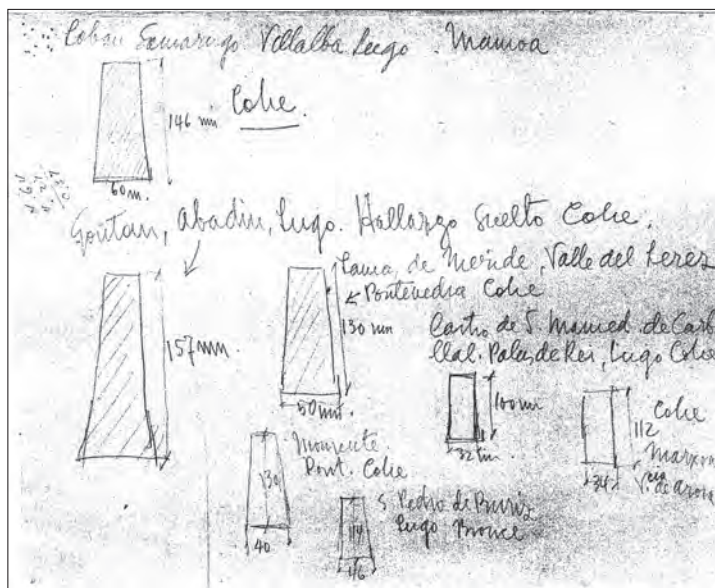 Coban Samarugo Villalba Lugo. Mamoa
146 mm
Cobre
60 m.
Goutan, Abadin, Lugo. Hallazgo Suelto Cobre.
Lama, de Meride, Valle del Lerez
Pontevedra Cobre
157 mm.
130 mm
50 mm.
Castro de S. Mamed. de Carb
llal. Palas de Rei, Lugo Cobre
100 mm
32 mm.
Cobre
112
34
Vª de Arosa
Pont. Cobre
130
40
S. Pedro de Buriz
Lugo Bronce
114
46